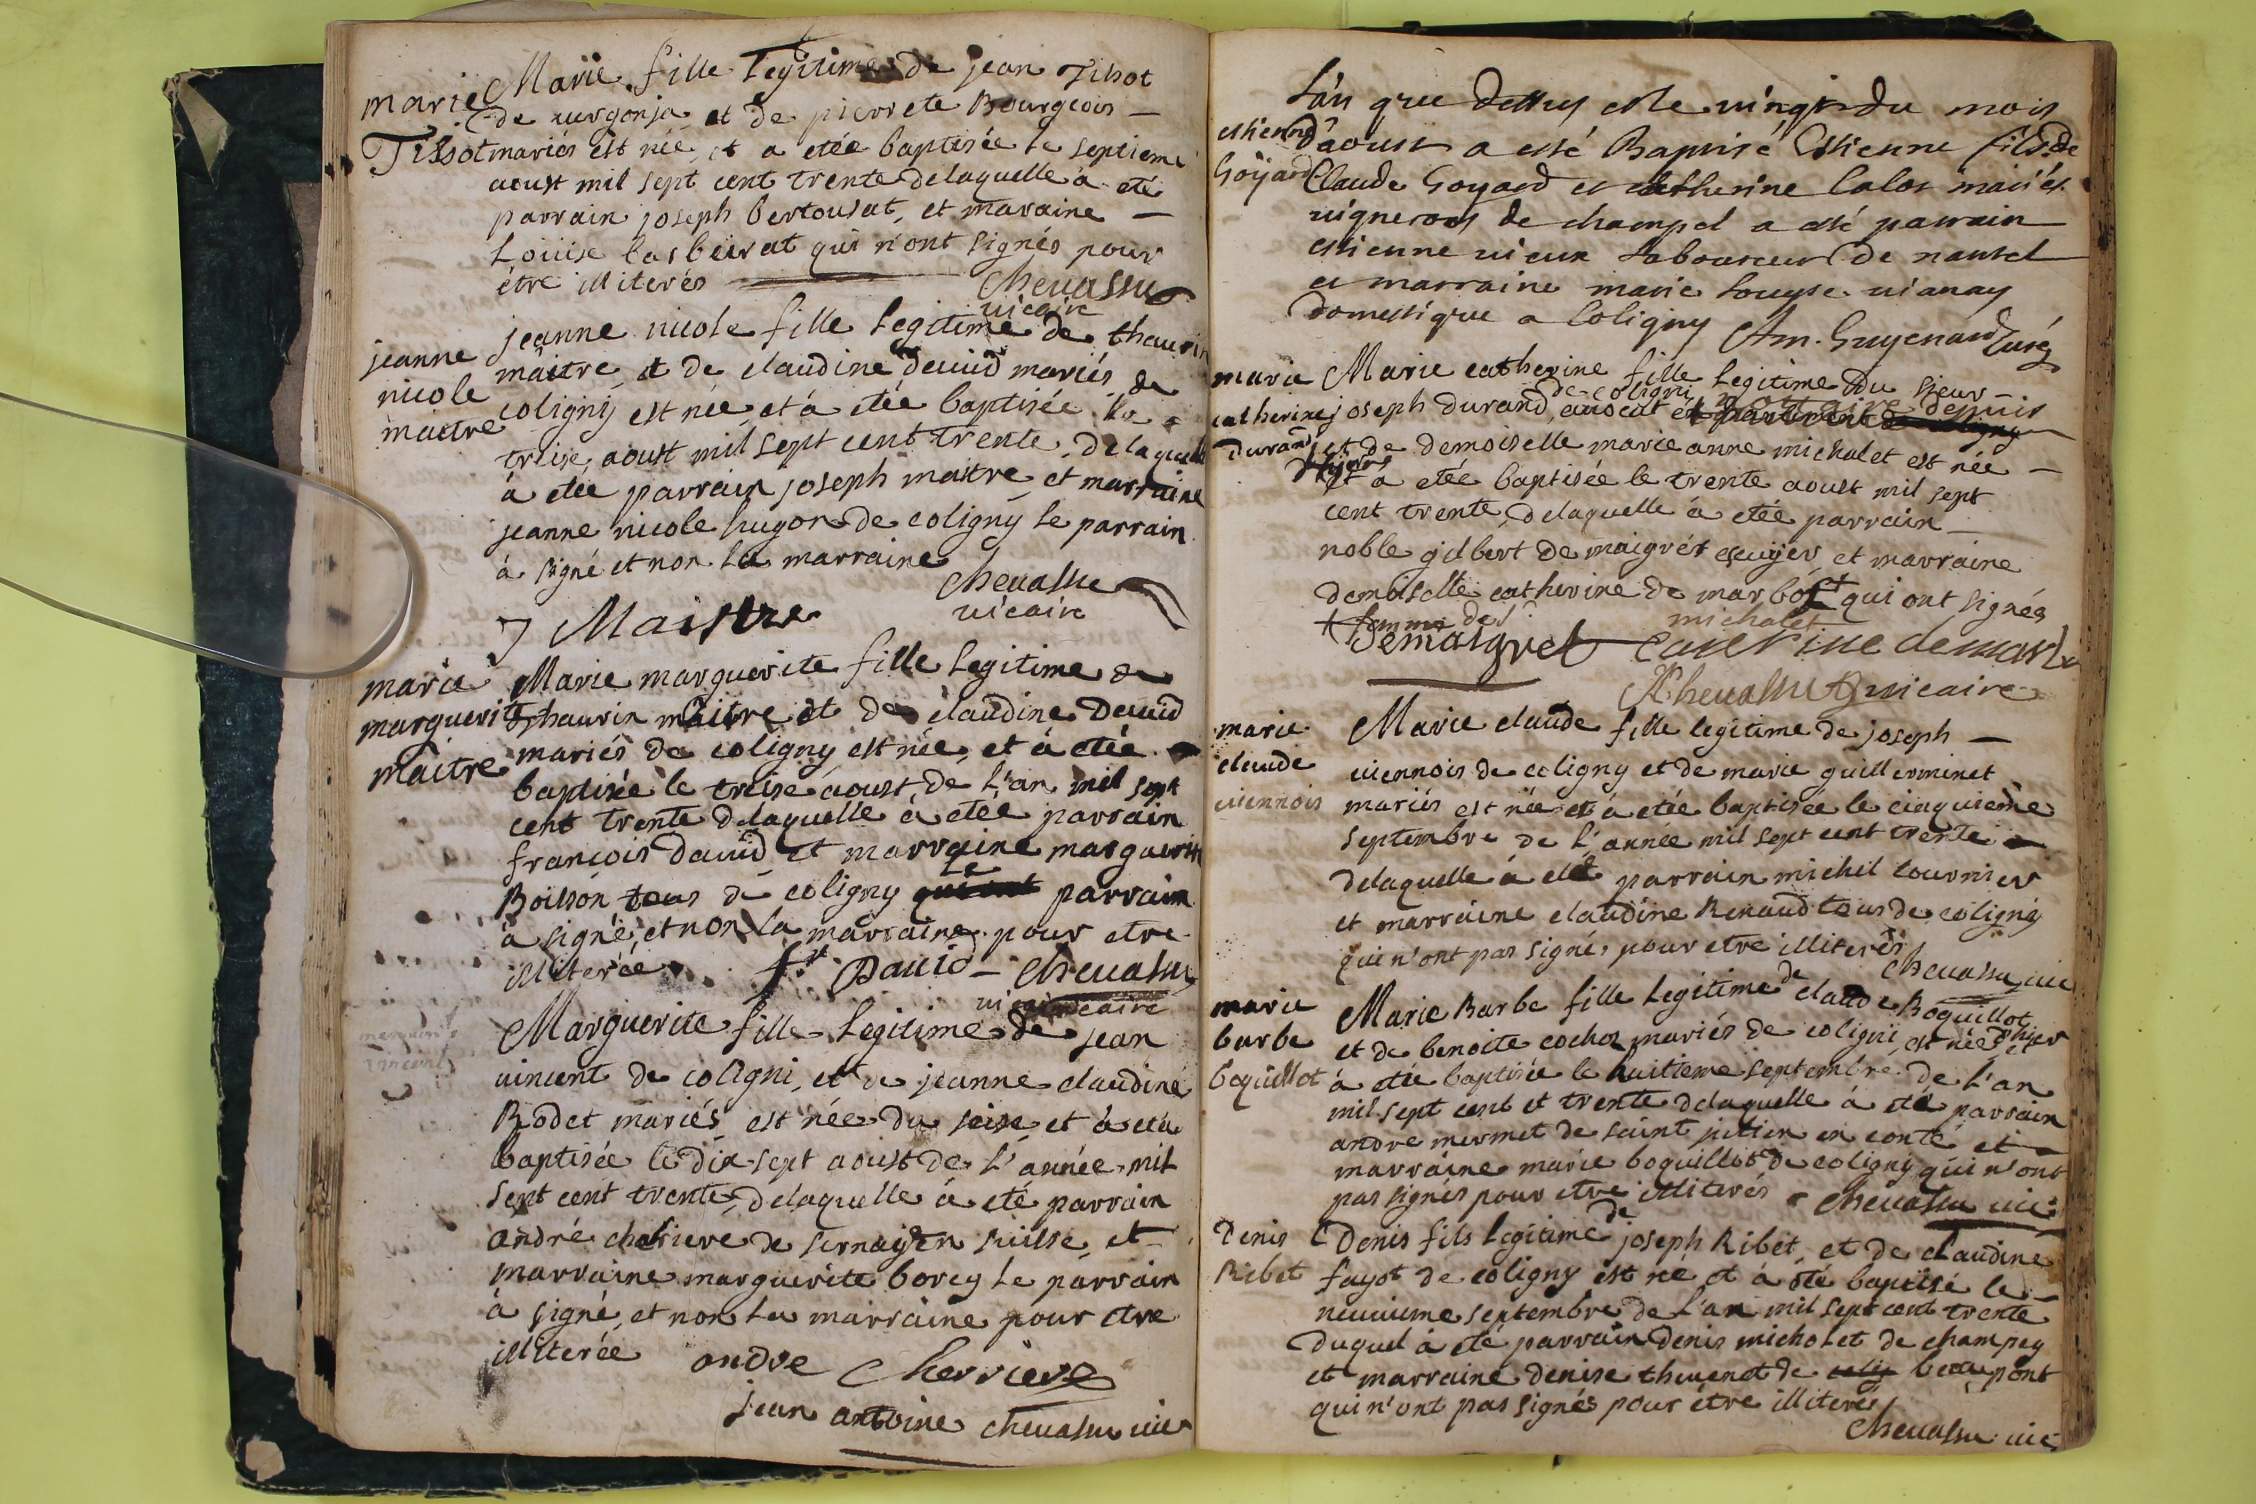 Marie fille legitime de jean Tihot
marie
de et de pierrete Bourgeois
Tissot
mariés est née, et a etée baptisée le septieme
aoust mil sept cent trente delaquelle a eté
parrain joseph bertousat, et maraine
Loüise barbeirat qui n'ont signés pour
étre illiterés
Chevassu
vicaire
jeanne nicole fille legitime de thaurin
jeanne
nicole
maitre
maitre, et de claudine david mariés de
coligny est née, et á etée baptisée le
treise, aoust mil sept cent trente, delaquelle
á etée parrain joseph maitre, et marraine
jeanne nicole hugon de coligny le parrain
á signé et non la marraine
Chevassu
vicaire
J Maistre
marie
marguerite
maitre
Marie marguerite fille legitime de
thaurin maitre et de claudine David
mariés de coligny est née, et á etée
baptisée le treise aoust de l'an mil sept
cent trente delaquelle á etée parrain
françois david et marraine marguerite
Boisson tous de coligny qui ont le parrain
á signé, et non la marraine pour etre
illiterée f. David - Chevassu
vicaire
marguerite
vincent
Marguerite fille legitime de jean
vincent de coligni, et de jeanne claudine
Rodet mariés est née du seise et á etée
baptisée le dix sept aoust de l'année mil
sept cent trente, delaquelle á eté parrain
andré charriere de en suisse, et
marraine marguerite borey le parrain
á signé, et non la marraine pour etre
illiterée andre Cherriere
jean antoine chevassu vic
L'an que dessus et le vingt du mois
estienne
Goÿard
d'aoust a esté Baptisé Estienne fils de
Claude Goyard et catherine Calot mariés
vignerons de champel a esté parrain
estienne vieux laboureur de nantel
et marraine marie Louyse vianay
domestique a Coligny Am. Guyenard Curé
marie
catherine
durand
Marie catherine fille legitime du sieur
joseph durand avocat de coligni
et de demoiselle marie anne michalet est née
d'hier
et a etée baptisée le trente aoust mil sept
cent trente, delaquelle á etée parrain
noble gilbert de maigret ecuÿer, et marraine
demoiselle catherine de marbost qui ont signés
+ femme de s.r michalet
Demaigret Caterine demarbo
Chevassu vicaire
marie
claude
viennois
Marie claude fille legitime de joseph
viennois de coligny et de marie guillerminet
mariés est née et a etée baptisée le cinquieme
septembre de l'année mil sept cent trente
delaquelle á eté parrain michel tournier
et marraine claudine Renaud tous de coligny
qui n'ont pas signés pour etre illiterés
Chevassu vic
marie
barbe
boquillot
Marie Barbe fille legitime de claude Boquillot
et de benoite cochoz mariés de coligni, est née d'hier et
á etée baptisée le huitieme septembre de l'an
mil sept cent et trente delaquelle á eté parrain
andre mermet de saint jullien en conté et
marraine marie boquillot de coligny qui n'ont
pas signés pour etre illiterés Chevassu vic:
Denis
Ribet
Denis fils legitime de joseph Ribet, et de claudine
fayot de coligny est né et á été baptisé le
neuvieme septembre de l'an mil sept cent trente
duquel á eté parrain denis micholet de champey
et marraine denise thevenot de colig beaupont
qui n'ont pas signés pour étre illiterés
Chevassu vic